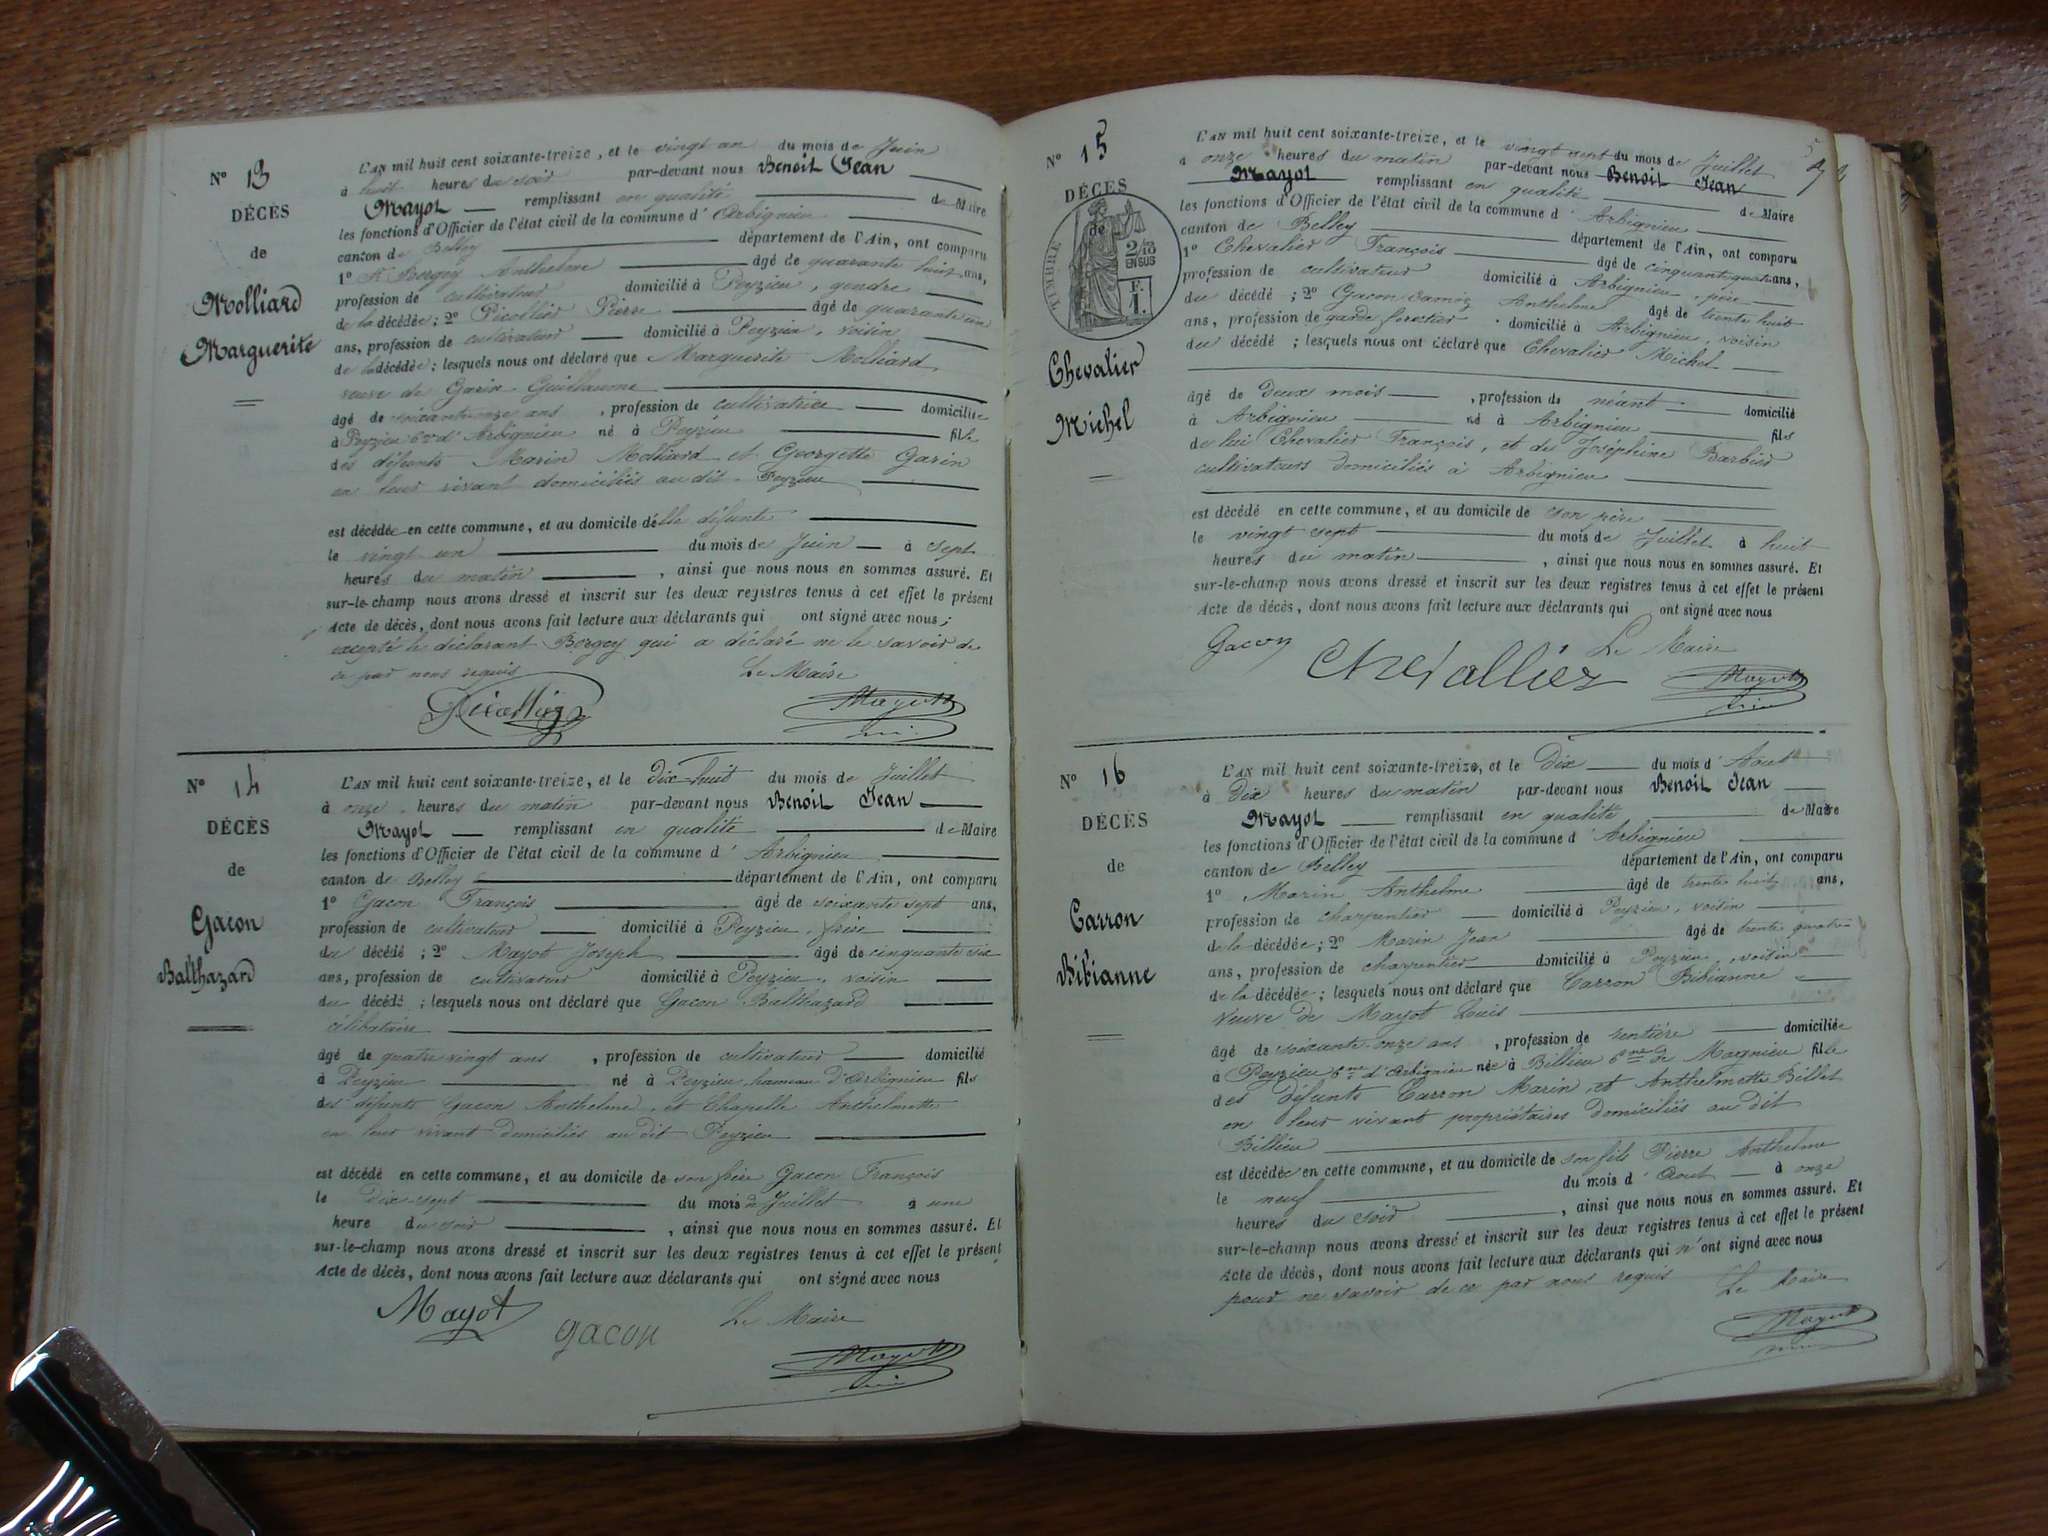 N° 13
DÉCÈS
de
Molliard
Marguerite
L'AN mil huit cent soixante-treize, et le vingt un du mois de Juin
à huit heures du soir par-devant nous Benoit Jean
Mayot remplissant en qualité de Maire
les fonctions d'Officier de l'état civil de la commune d'Arbignieu
canton de Belley département de l'Ain, ont comparu
1° Bergey Anthelme âgé de quarante huit ans,
profession de cultivateur domicilié à Peyzieu, gendre
de la décédée; 2° Pierre âgé de quarante un
ans, profession de cultivateur domicilié à Peyzieu, voisin
de la décédée; lesquels nous ont déclaré que Marguerite Molliard,
veuve de Garin Guillaume
âgé de soixante onze ans, profession de cultivatrice domiciliée
à Peyzieu Cne d'Arbignieu né à Peyzieu fille
des défunts Marin Molliard et Georgette Garin
en leur vivant domiciliés au dit Peyzieu
est décédée en cette commune, et au domicile de lle défunte
le vingt un du mois de Juin à sept
heures du matin, ainsi que nous nous en sommes assuré. Et
sur-le-champ nous avons dressé et inscrit sur les deux registres tenus à cet effet le présent
Acte de décès, dont nous avons fait lecture aux déclarants qui ont signé avec nous;
excepté le déclarant Bergey qui a déclaré ne le savoir de
ce par nous requis Le Maire
Mayot
N° 14
DÉCÈS
de
Gacon
Balthazard
L'AN mil huit cent soixante-treize, et le Dix huit du mois de Juillet
à onze heures du matin par-devant nous Benoit Jean
Mayot remplissant en qualité de Maire
les fonctions d'Officier de l'état civil de la commune d'Arbignieu
canton de Belley département de l'Ain, ont comparu
1° Gacon François âgé de soixante sept ans,
profession de cultivateur domicilié à Peyzieu, frère
du décédé; 2° Mayot Joseph âgé de cinquante six
ans, profession de cultivateur domicilié à Peyzieu, voisin
du décédé; lesquels nous ont déclaré que Gacon Balthazard
célibataire
âgé de quatre vingt ans, profession de cultivateur domicilié
à Peyzieu né à Peyzieu hameau d'Arbignieu fils
des défunts Gacon Anthelme, et Chapelle Anthelmette
en leur vivant domiciliés au dit Peyzieu
est décédé en cette commune, et au domicile de son frère Gacon François
le Dix sept du mois de Juillet à une
heure du soir, ainsi que nous nous en sommes assuré. Et
sur-le-champ nous avons dressé et inscrit sur les deux registres tenus à cet effet le présent
Acte de décès, dont nous avons fait lecture aux déclarants qui ont signé avec nous
Mayot gacon Le Maire
Mayot
N° 15
DÉCÈS
de
TIMBRE
2/10
EN SUS
F.
1.
Chevalier
Michel
L'AN mil huit cent soixante-treize, et le vingt sept du mois de Juillet
à onze heures du matin par-devant nous Benoit Jean
Mayot remplissant en qualité de Maire
les fonctions d'Officier de l'état civil de la commune d'Arbignieu
canton de Belley département de l'Ain, ont comparu
1° Chevalier François âgé de cinquante quatre ans,
profession de cultivateur domicilié à Arbignieu, père
du décédé; 2° Gacon Anthelme âgé de trente huit
ans, profession de garde forestier domicilié à Arbignieu, voisin
du décédé; lesquels nous ont déclaré que Chevalier Michel
âgé de Deux mois, profession de néant domicilié
à Arbignieu né à Arbignieu fils
de lui Chevalier François, et de Joséphine Barbier
cultivateurs domiciliés à Arbignieu
est décédé en cette commune, et au domicile de son père
le vingt sept du mois de Juillet à huit
heures du matin, ainsi que nous nous en sommes assuré. Et
sur-le-champ nous avons dressé et inscrit sur les deux registres tenus à cet effet le présent
Acte de décès, dont nous avons fait lecture aux déclarants qui ont signé avec nous
Gacon Chevallier Le Maire
Mayot
N° 16
DÉCÈS
de
Carron
Bibianne
L'AN mil huit cent soixante-treize, et le Dix du mois d'Aout
à Dix heures du matin par-devant nous Benoit Jean
Mayot remplissant en qualité de Maire
les fonctions d'Officier de l'état civil de la commune d'Arbignieu
canton de Belley département de l'Ain, ont comparu
1° Marin Anthelme âgé de trente huit ans,
profession de charpentier domicilié à Peyzieu, voisin
de la décédée; 2° Marin Jean âgé de trente quatre
ans, profession de charpentier domicilié à Peyzieu, voisin
de la décédée; lesquels nous ont déclaré que Carron Bibianne
veuve de Mayot Louis
âgé de soixante-onze ans, profession de rentière domiciliée
à Peyzieu Cne d'Arbignieu née à Billieu Cne de Magnieu fille
des Défunts Carron Marin, et Anthelmette Billet
en leur vivant propriétaires domiciliés au dit
Billieu
est décédée en cette commune, et au domicile de son fils Pierre Anthelme
le neuf du mois d'Aout à onze
heures du soir, ainsi que nous nous en sommes assuré. Et
sur-le-champ nous avons dressé et inscrit sur les deux registres tenus à cet effet le présent
Acte de décès, dont nous avons fait lecture aux déclarants qui n'ont signé avec nous
pour ne savoir de ce par nous requis Le Maire
Mayot